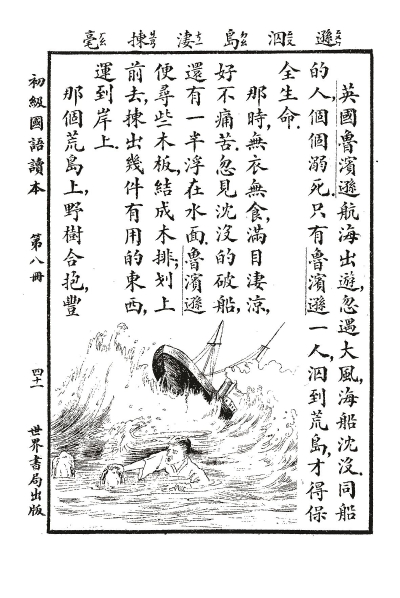 遜 泅 島 淒 揀 毫
英國魯濱遜航海出遊,忽遇大風,海船沈沒.同船
的人,個個溺死.只有魯濱遜一人,泅到荒島,才得保
全生命.
那時,無衣無食,滿目淒涼,
好不痛苦.忽見沈沒的破船,
還有一半浮在水面.魯濱遜
便尋些木板,結成木排,划上
前去,揀出幾件有用的東西,
運到岸上.
那個荒島上,野樹合抱,豐
初級國語讀本 第八冊 四十一 世界書局出版